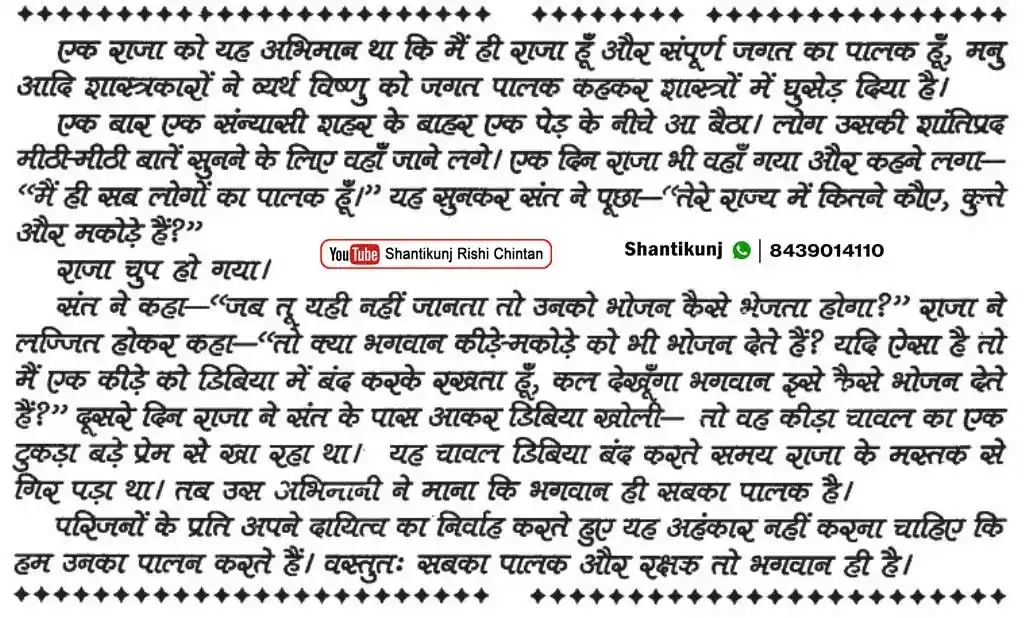 एक राजा को यह अभिमान था कि मैं ही राजा हूँ और संपूर्ण जगत का पालक हूँ, मनु
आदि शास्त्रकारों ने व्यर्थ विष्णु को जगत पालक कहकर शास्त्रों में घुसेड़ दिया है।
एक बार एक संन्यासी शहर के बाहर एक पेड़ के नीचे आ बैठा। लोग उसकी शांतिप्रद
मीठी-मीठी बातें सुनने के लिए वहाँ जाने लगे। एक दिन राजा भी वहाँ गया और कहने लगा—
“मैं ही सब लोगों का पालक हूँ।” यह सुनकर संत ने पूछा—“तेरे राज्य में कितने कौए, कुत्ते
और मकोड़े हैं?”
YouTube Shantikunj Rishi Chintan
Shantikunj | 8439014110
राजा चुप हो गया।
संत ने कहा—“जब तू यही नहीं जानता तो उनको भोजन कैसे भेजता होगा?” राजा ने
लज्जित होकर कहा—“तो क्या भगवान कीड़े-मकोड़े को भी भोजन देते हैं? यदि ऐसा है तो
मैं एक कीड़े को डिबिया में बंद करके रखता हूँ, कल देखूँगा भगवान इसे कैसे भोजन देते
हैं?” दूसरे दिन राजा ने संत के पास आकर डिबिया खोली— तो वह कीड़ा चावल का एक
टुकड़ा बड़े प्रेम से खा रहा था। यह चावल डिबिया बंद करते समय राजा के मस्तक से
गिर पड़ा था। तब उस अभिमानी ने माना कि भगवान ही सबका पालक है।
परिजनों के प्रति अपने दायित्व का निर्वाह करते हुए यह अहंकार नहीं करना चाहिए कि
हम उनका पालन करते हैं। वस्तुतः सबका पालक और रक्षक तो भगवान ही है।